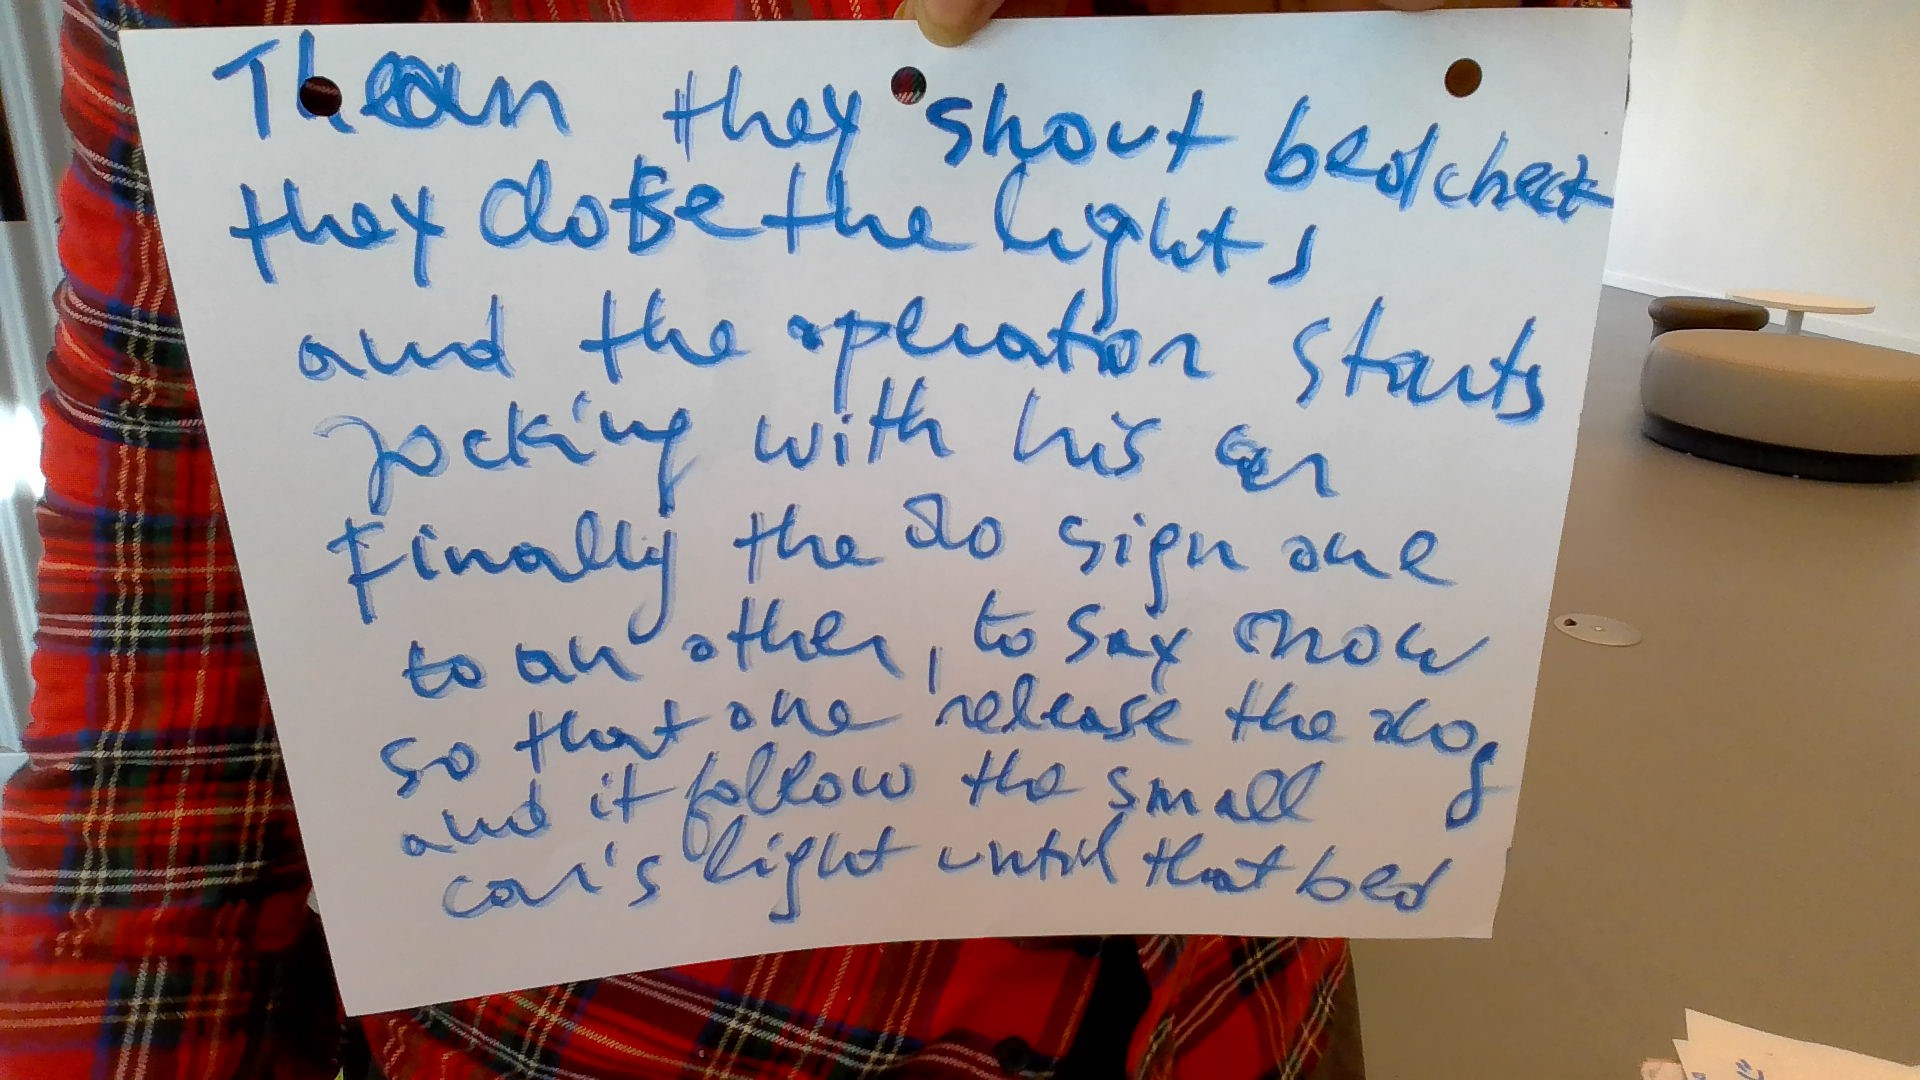 Then they shout bedcheck
they close the lights
and the operation starts
Jocking with his
Finally the do sign one
to an other, to say now
so that one release the dog
and it follow the small
car's light until that bed